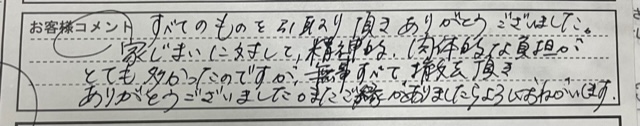 お客様コメント すべてのものを引取り頂きありがとうございました。
家じまいに対して、精神的、肉体的な負担が
とても多かったのですが、すべて、撤去頂き
ありがとうございました。またご縁がありましたらよろしくおねがいします。